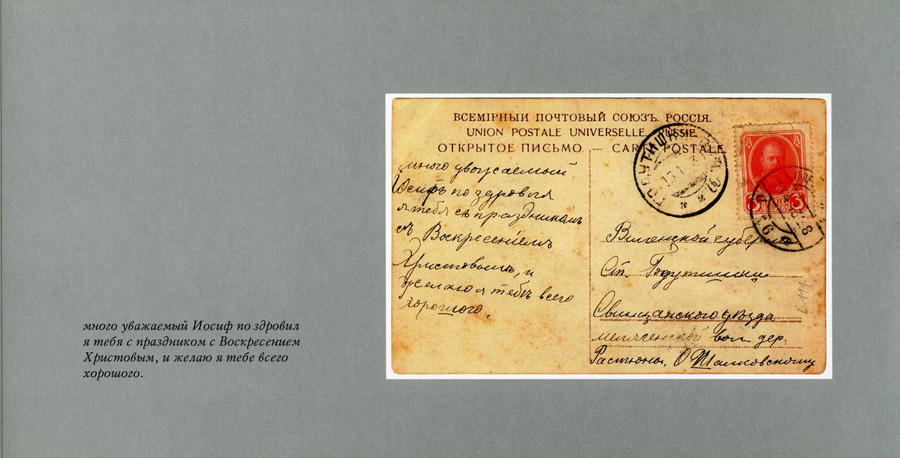 много уважаемый Иосиф по здровил
я тебя с праздником с Воскресением
Христовым, и желаю я тебе всего
хорошого.
ВСЕМІРНЫЙ ПОЧТОВЫЙ СОЮЗЪ. РОССІЯ.
UNION POSTALE UNIVERSELLE. RUSSIE.
ОТКРЫТОЕ ПИСЬМО. — CARTE POSTALE
много уважаемый
Іосифъ по здровил
я тебя съ праздникамъ
съ Воскресеніемъ
Христовымъ, и
желаю я тебъ всего
хорошого.
3 3
Виленской губерніи
Ст.
Свинцанского уѣзда
вол дер.